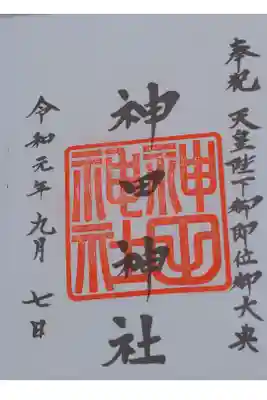 奉祝 天皇陛下御即位御大典
神田神社
令和元年九月七日
神田神社